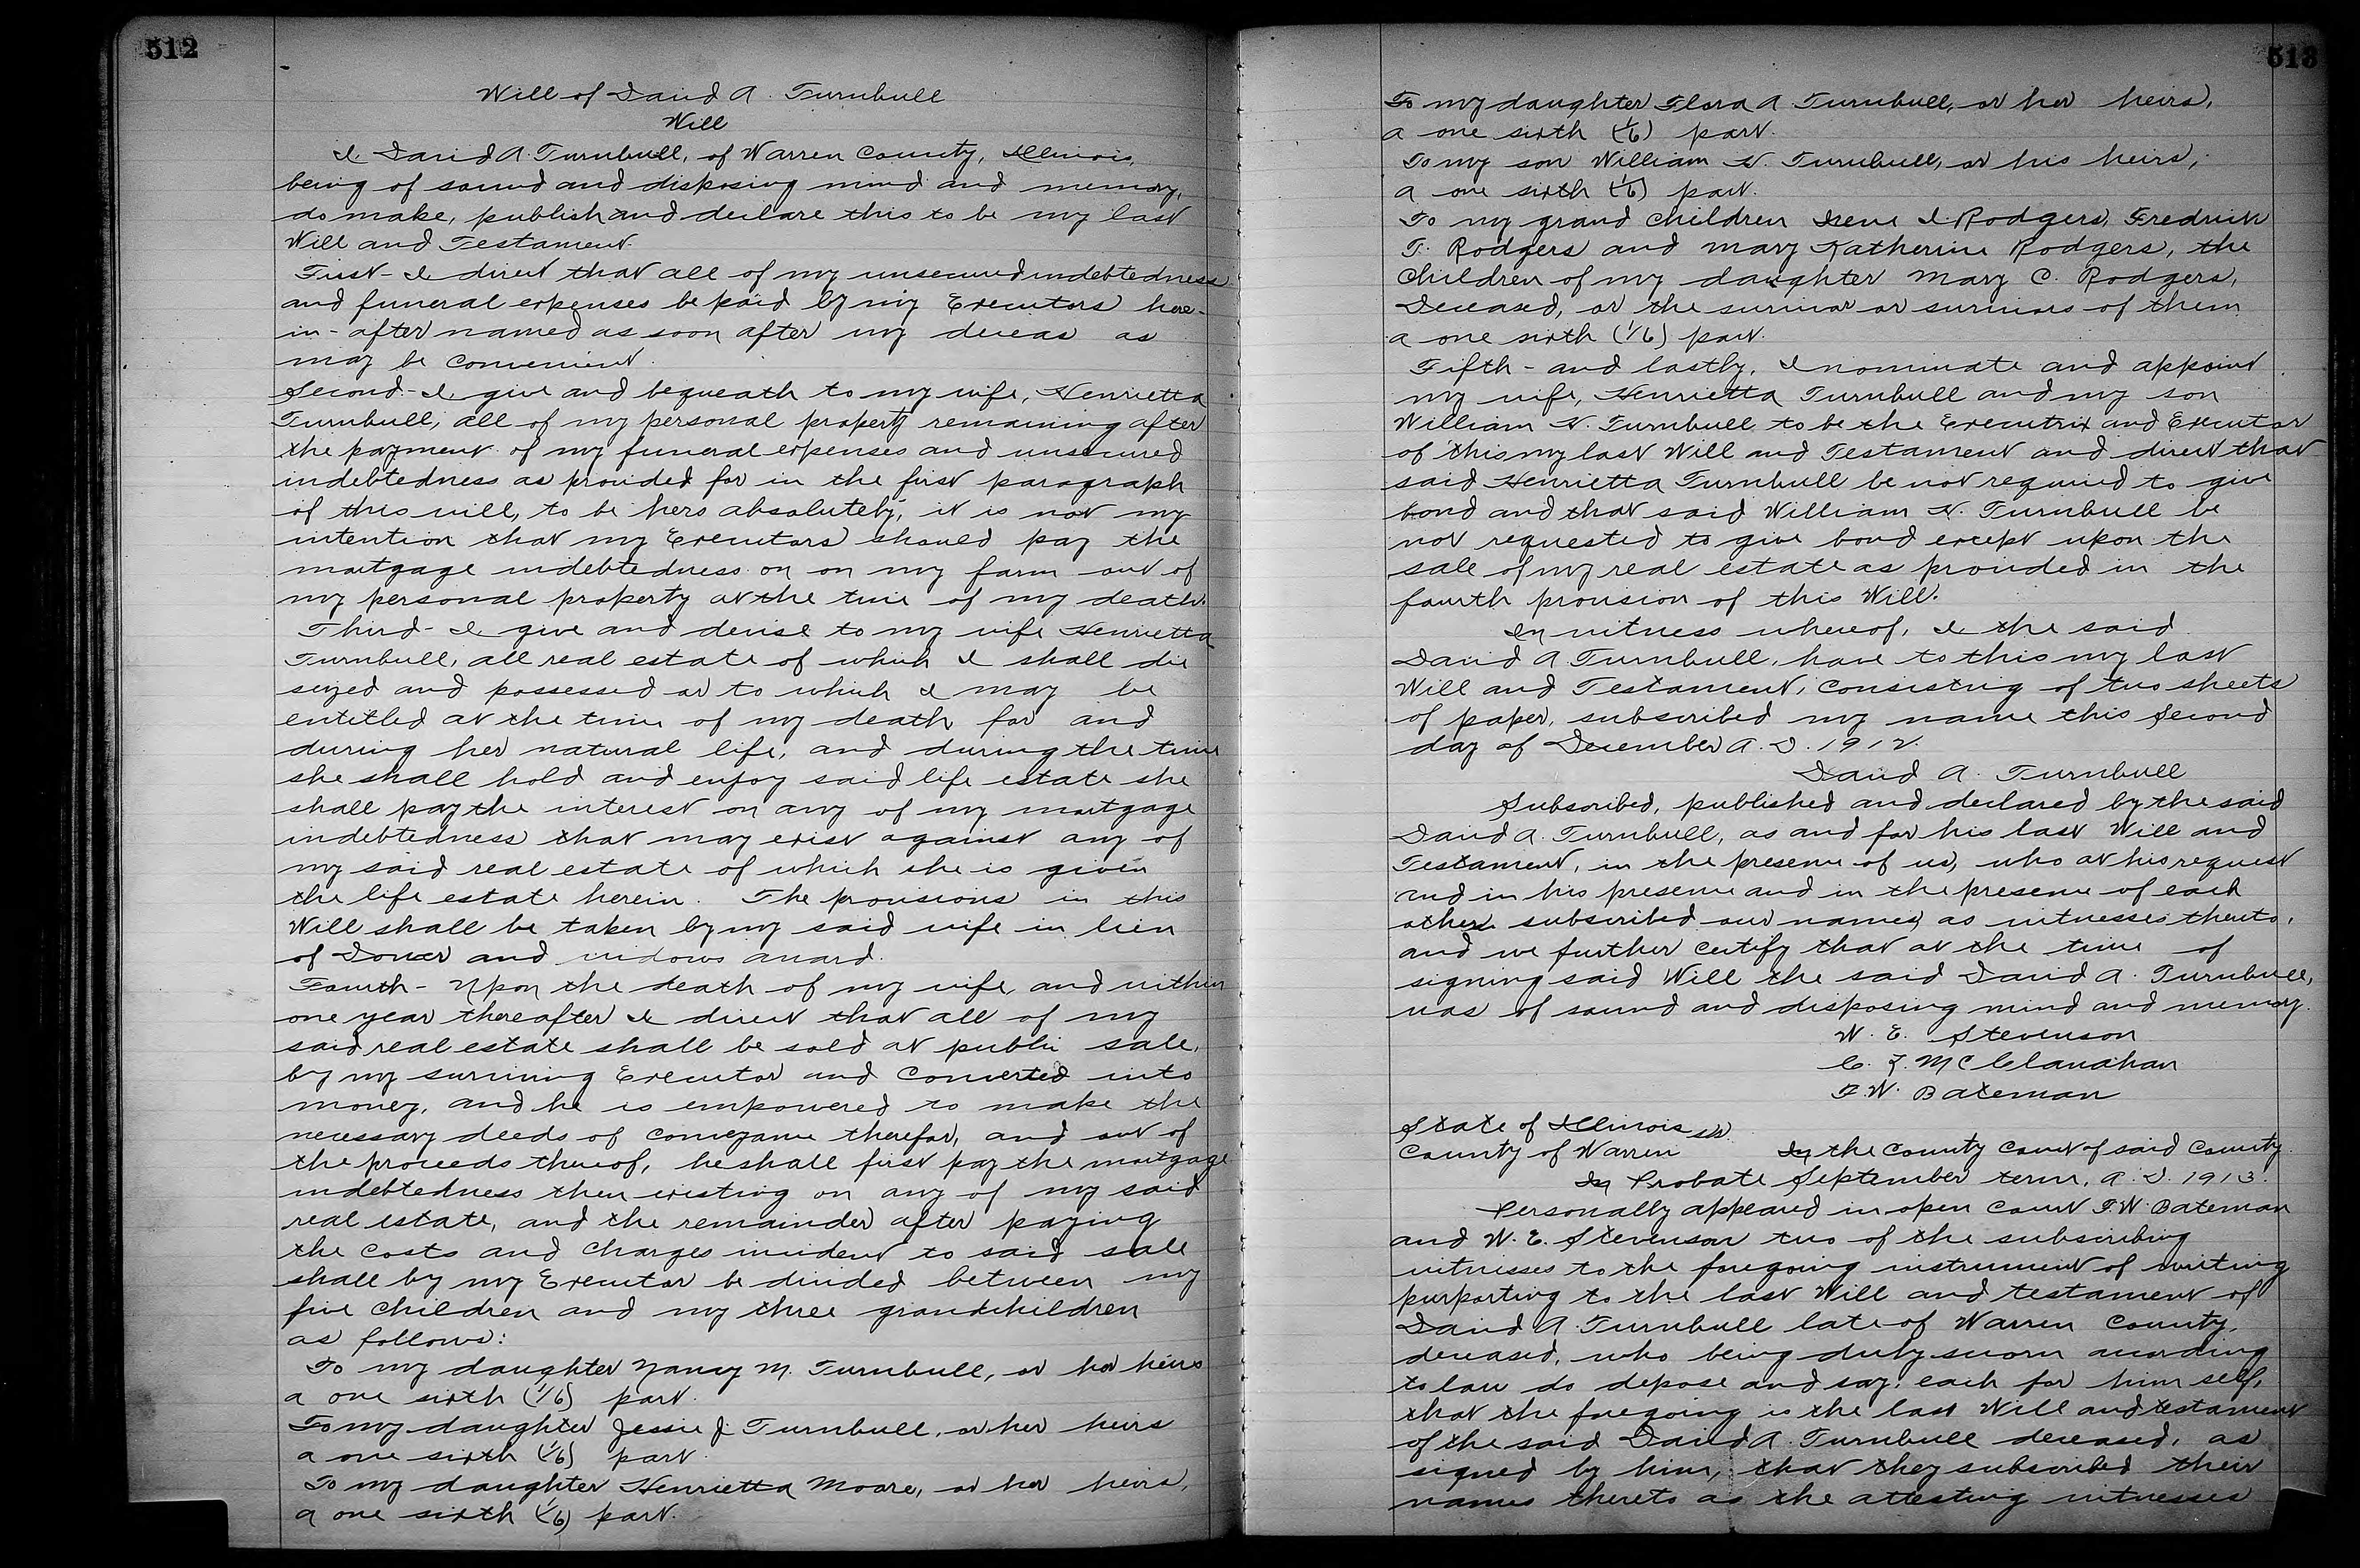 512
Will of David A. Turnbull
Will
I David A. Turnbull, of Warren County, Illinois,
being of sound and disposing mind and memory,
do make, publish and declare this to be my last
Will and Testament.
First - I direct that all of my unsecured indebtedness
and funeral expenses be paid by my Executors here-
in-after named as soon after my deceas as
may be convenient.
Second - I give and bequeath to my wife, Henrietta
Turnbull, all of my personal property remaining after
the payment of my funeral expenses and unsecured
indebtedness as provided for in the first paragraph
of this will, to be hers absolutely, it is not my
intention that my Executors should pay the
mortgage indebtedness on on my farm out of
my personal property at the time of my death.
Third - I give and devise to my wife Henrietta
Turnbull, all real estate of which I shall die
seized and possessed or to which I may be
entitled at the time of my death for and
during her natural life, and during the time
she shall hold and enjoy said life estate she
shall pay the interest on any of my mortgage
indebtedness that may exist against any of
my said real estate of which she is given
the life estate herein. The provisions in this
Will shall be taken by my said wife in lieu
of Dower and widows award.
Fourth - Upon the death of my wife, and within
one year thereafter I direct that all of my
said real estate shall be sold at public sale,
by my surviving Executor and Converted into
money, and he is empowered to make the
necessary deeds of conveyance therefor, and out of
the proceeds thereof, he shall first pay the mortgage
indebtedness then existing on any of my said
real estate, and the remainder after paying
the costs and charges incident to said sale
shall by my Executor be divided between my
five children and my three grandchildren
as follows:
To my daughter Nancy M. Turnbull, or her heirs
a one sixth (1/6) part.
To my daughter Jessie J. Turnbull, or her heirs
a one sixth (1/6) part.
To my daughter Henrietta Moore, or her heirs,
a one sixth (1/6) part.
513
To my daughter Flora A. Turnbull, or her heirs,
a one sixth (1/6) part.
To my son William N. Turnbull, or his heirs,
a one sixth (1/6) part.
To my grand children Irene I. Rodgers, Fredrick
T. Rodgers and Mary Katherine Rodgers, the
children of my daughter Mary C. Rodgers,
Deceased, or the survivor or survivors of them
a one sixth (1/6) part.
Fifth - and lastly, I nominate and appoint
my wife, Henrietta Turnbull and my son
William N. Turnbull to be the Executrix and Executor
of this my last Will and Testament and direct that
said Henrietta Turnbull be not required to give
bond and that said William N. Turnbull be
not requested to give bond except upon the
sale of my real estate as provided in the
fourth provision of this Will.
In witness whereof, I the said
David A Turnbull, have to this my last
Will and Testament, consisting of two sheets
of paper, subscribed my name this Second
day of December A.D. 1912.
David A. Turnbull
Subscribed, published and declared by the said
David A. Turnbull, as and for his last Will and
Testament, in the presence of us, who at his request
and in his presence and in the presence of each
other subscribed our names as witnesses thereto,
and we further certify that at the time of
signing said Will the said David A. Turnbull,
was of sound and disposing mind and memory.
W. E. Stevenson
C. Z. McClanahan
F. W. Bateman
State of Illinois ss.
County of Warren In the County Court of said County
In Probate September term, A.D. 1913.
Personally appeared in open Court F. W. Bateman
and W. E. Stevenson two of the subscribing
witnesses to the foregoing instrument of writing
purporting to the last Will and testament of
David A. Turnbull late of Warren County,
deceased, who being duly sworn according
to law do depose and say, each for him self,
that the foregoing is the last Will and testament
of the said David A. Turnbull deceased, as
signed by him, that they subscribed their
names thereto as the attesting witnesses